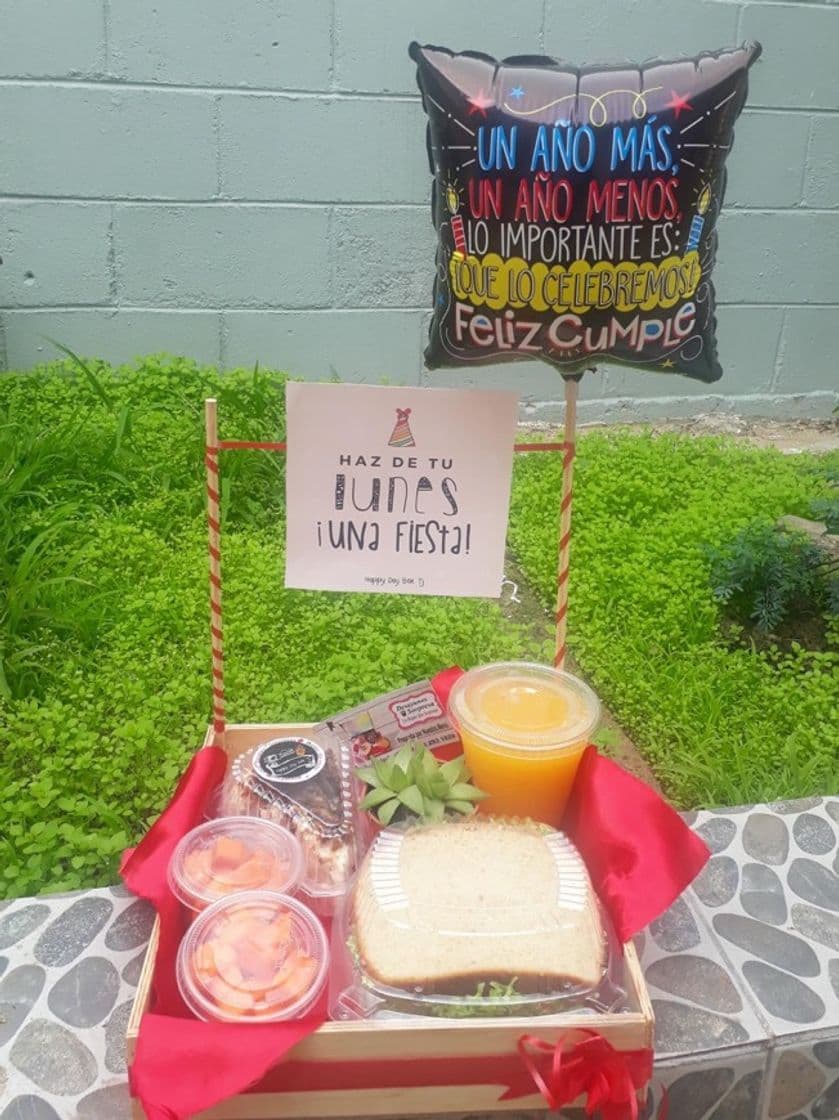 UN AÑO MÁS,
UN AÑO MENOS,
LO IMPORTANTE ES:
¡QUE LO CELEBREMOS!
FELIZ CUMPLE
HAZ DE TU
lunes
¡UNA FIESTA!
Happy Day Box :)
Desayunos
Sorpresa